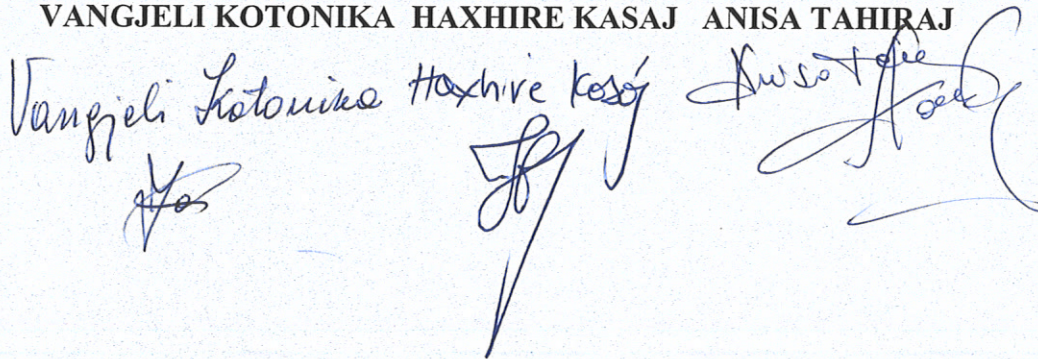 VANGJELI KOTONIKA HAXHIRE KASAJ ANISA TAHIRAJ
Vangjeli Kotonika Haxhire Kosaj